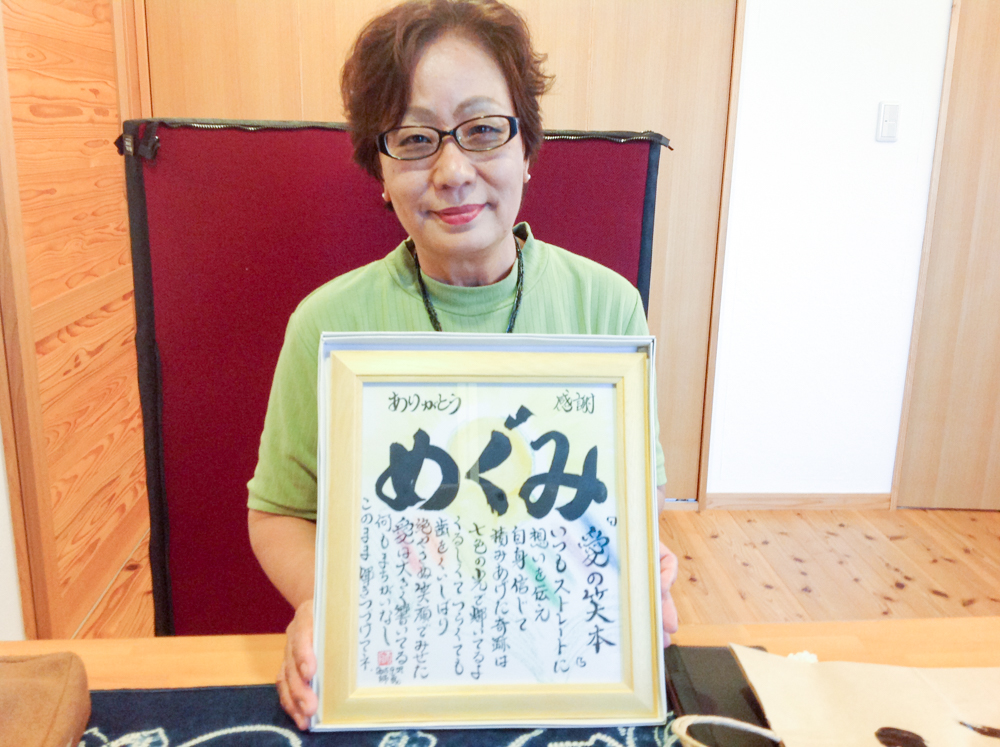 ありがとう
感謝
めぐみ
『愛の笑本』
いつもストレートに
想いを伝え
自身信じて
積みあげた奇跡は
七色の光で輝いてるよ
くるしくてつらくても
歯をくいしばり
絶やさぬ笑顔でみせた
愛は大きく響いてる
何もまちがいなし
このまま輝きつづけてネ